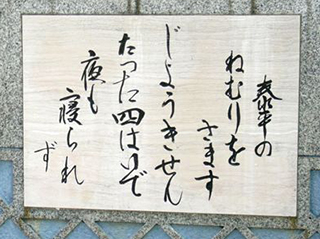 泰平の
ねむりを
さます
じようきせん
たった四はいで
夜も
寝られ
ず